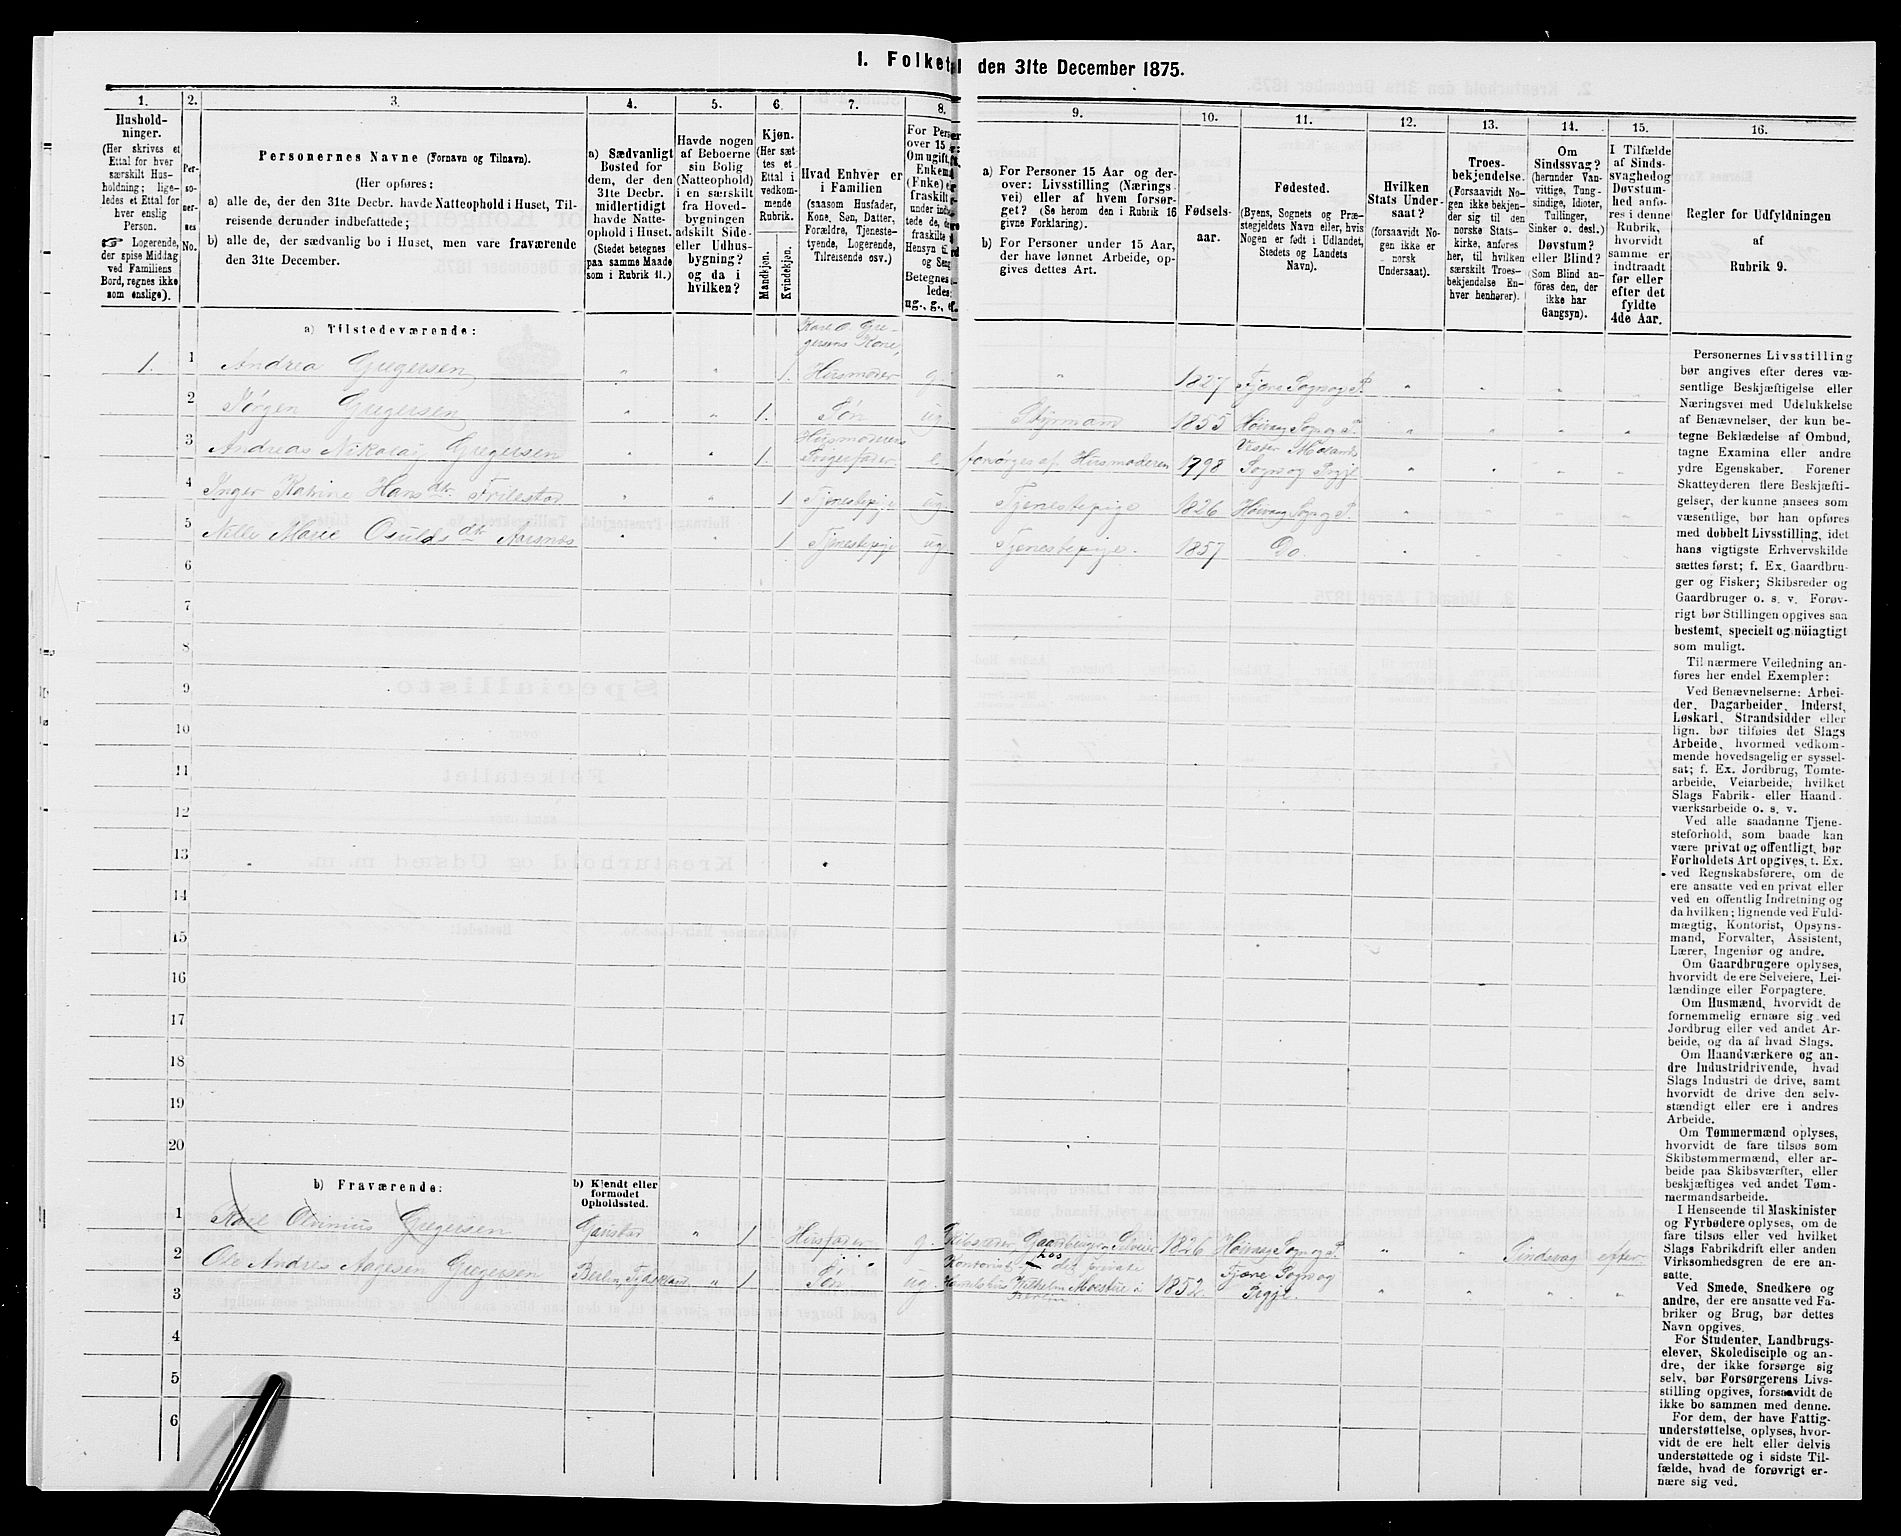 1. Folketal den 31te December 1875.
1.
2.
3.
4.
5.
6.
7.
8.
9.
10.
11.
12.
13.
14.
15.
16.
Hushold-
ninger.
(Her skrives et
Ettal for hver
særskilt Hus-
holdning; lige-
ledes et Ettal for
hver enslig
Person.
☞ Logerende,
der spise Middag
ved Familiens
Bord, regnes ikke
som enslige).
Per-
so-
ner-
nes
No.
Personernes Navne (Fornavn og Tilnavn).
(Her opføres:
a) alle de, der den 31te Decbr. havde Natteophold i Huset, Til-
reisende derunder indbefattede;
b) alle de, der sædvanlig bo i Huset, men vare fraværende
den 31te December.
a) Sædvanligt
Bosted for
dem, der den
31te Decbr.
midlertidigt
havde Natte-
ophold i Huset.
(Stedet betegnes
paa samme Maade
som i Rubrik 11.)
Havde nogen
af Beboerne
sin Bolig
(Natteophold)
i en særskilt
fra Hoved-
bygningen
adskilt Side-
eller Udhus-
bygning?
og da i
hvilken?
Kjøn.
(Her sæt-
tes et
Ettal i
vedkom-
mende
Rubrik.
Mandkjøn.
Kvindekjøn.
Hvad Enhver er
i Familien
(saasom Husfader,
Kone, Søn, Datter,
Forældre, Tjeneste-
tyende, Logerende,
Tilreisende osv.)
For Perso
over 15
Om ugift,
Enkema
(Enke) e
fraskilt
under ind
tede de,
fraskilte
Hensyn til
og Seng
Betegnes
ledes:
ug., g., e.
a) For Personer 15 Aar og der-
over: Livsstilling (Nærings-
vei) eller af hvem forsør-
get? (Se herom den i Rubrik 16
givne Forklaring).
b) For Personer under 15 Aar,
der have lønnet Arbeide, op-
gives dettes Art.
Fødsels-
aar.
Fødested.
(Byens, Sognets og Præ-
stegjeldets Navn eller, hvis
Nogen er født i Udlandet,
Stedets og Landets
Navn).
Hvilken
Stats Under-
saat?
(forsaavidt No-
gen ikke er
norsk
Undersaat).
Troes-
bekjendelse.
(Forsaavidt No-
gen ikke bekjen-
der sig til den
norske Stats-
kirke, anføres
her, til hvilken
særskilt Troes-
bekjendelse En-
hver henhører).
Om
Sindssvag?
(herunder Van-
vittige, Tung-
sindige, Idioter,
Tullinger,
Sinker o. desl.)
Døvstum?
eller Blind?
(Som Blind an-
føres den, der
ikke har
Gangsyn).
I Tilfælde
af Sinds-
svaghed og
Døvstum-
hed anfø-
res i denne
Rubrik,
hvorvidt
samme er
indtraadt
før eller
efter det
fyldte
4de Aar.
Regler for Udfyldningen
af
Rubrik 9.
a) Tilstedeværende:
Karl O. Gre-
gersens Kone,
1. 1 Andrea Gregersen " " 1. Husmoder g " 1827 Fjære Sogn og P. " " "
2 Jørgen Gregersen " " 1. Søn ug Styrmand 1855 Høivag Sogn og P. " " " "
Husmoderens Vester Molands
3 Andreas Nikolai Gregersen " " 1. e forsørges af Husmoderen 1798 Sogn og Prgjl. " " " "
4 Inger Katrine Hans dtr. Frilestad " " 1 Tjenestepige ug Tjenestepige 1826 Høivag Sogn og P. " " " "
5 Nille Marie Osulds dtr. Aarsnæs " " 1 Tjenestepige ug Tjenestepige. 1857 Do. " " " "
6
7
8
9
10
11
12
13
14
15
16
17
18
19
20
b) Fraværende:
b) Kjendt eller
formodet
Opholdssted.
1 Karl Olvinius Gregersen Gaustad " 1 Husfader g. Skibsreder, Gaardbruger, Selveier 1826 Høivag Sogn og P. " " Sindsvag efter
Kontorist hos det private Fjære Sogn og
2 Ole Andres Aagesen Gregersen Berlin, Tydskland " 1 Søn ug. Handelshus Wilhelm Moestue i 1852. Prgjl. " " " "
Berlin
3
4
5
6
Personernes Livsstilling
bør angives efter deres væ-
sentlige Beskjæftigelse eller
Næringsvei med Udelukkelse
af Benævnelser, der kun be-
tegne Beklædelse af Ombud,
tagne Examina eller andre
ydre Egenskaber. Forener
Skatteyderen flere Beskjæfti-
gelser, der kunne ansees som
væsentlige, bør han opføres
med dobbelt Livsstilling, idet
hans vigtigste Erhvervskilde
sættes først; f. Ex. Gaardbru-
ger og Fisker; Skibsreder og
Gaardbruger o. s. v. Forøv-
rigt bør Stillingen opgives saa
bestemt, specielt og nöiagtigt
som muligt.
Til nærmere Veiledning an-
føres her endel Exempler:
Ved Benævnelserne: Arbei-
der, Dagarbeider, Inderst,
Løskarl, Strandsidder eller
lign. bør tilføies det Slags
Arbeide, hvormed vedkom-
mende hovedsagelig er syssel-
sat; f. Ex. Jordbrug, Tomte-
arbeide, Veiarbeide, hvilket
Slags Fabrik- eller Haand-
værksarbeide o. s. v.
Ved alle saadanne Tjene-
steforhold, som baade kan
være privat og offentligt, bør
Forholdets Art opgives, t. Ex.
ved Regnskabsførere, om de
ere ansatte ved en privat eller
ved en offentlig Indretning og
da hvilken; lignende ved Fuld-
mægtig, Kontorist, Opsyns-
mand, Forvalter, Assistent,
Lærer, Ingeniør og andre.
Om Gaardbrugere oplyses,
hvorvidt de ere Selveiere, Lei-
lændinge eller Forpagtere.
Om Husmænd, hvorvidt de
fornemmelig ernære sig ved
Jordbrug eller ved andet Ar-
beide, og da af hvad Slags.
Om Haandværkere og an-
dre Industridrivende, hvad
Slags Industri de drive, samt
hvorvidt de drive den selv-
stændigt eller ere i andres
Arbeide.
Om Tømmermænd oplyses,
hvorvidt de fare tilsøs som
Skibstømmermænd, eller ar-
beide paa Skibsværfter, eller
beskjæftiges ved andet Tøm-
mermandsarbeide.
I Henseende til Maskinister
og Fyrbødere oplyses, om de
fare tilsøs eller ved hvilket
Slags Fabrikdrift eller anden
Virksomhedsgren de ere an-
satte.
Ved Smede, Snedkere og
andre, der ere ansatte ved Fa-
briker og Brug, bør dettes
Navn opgives.
For Studenter, Landbrugs-
elever, Skoledisciple og an-
dre, der ikke forsørge sig
selv, bør Forsørgerens Livs-
stilling opgives, forsaavidt de
ikke bo sammen med denne.
For dem, der have Fattig-
understøttelse, oplyses, hvor-
vidt de ere helt eller delvis
understøttede og i sidste Til-
fælde, hvad de forøvrigt er-
nære sig ved.